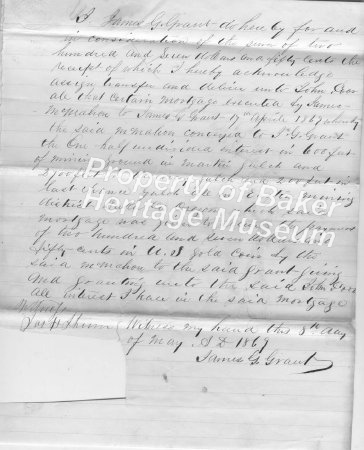 I James G. Grant do hereby for and
in consideration of the sum of two
hundred and seven dollars and fifty cents the
receipt of which I hereby acknowledge
assign transfer and deliver unto John
that certain mortgage executed by James
McMahon to James G. Grant April 1867 whereby
the said McMahon conveyed to J. G. Grant
the One half undivided interest in 600 feet
of mining ground in gulch and
gulch and 200 feet in
mining
district Oregon which
mortgage was
of two hundred and seven dollars
fifty cents in U.S. gold coin by the
said McMahon to the said Grant giving
and granting unto the said John
all interest I have in the said mortgage
Witness
Witness my hand this 8th day
of May A D 1869
James G. Grant
Property of Baker
Heritage Museum